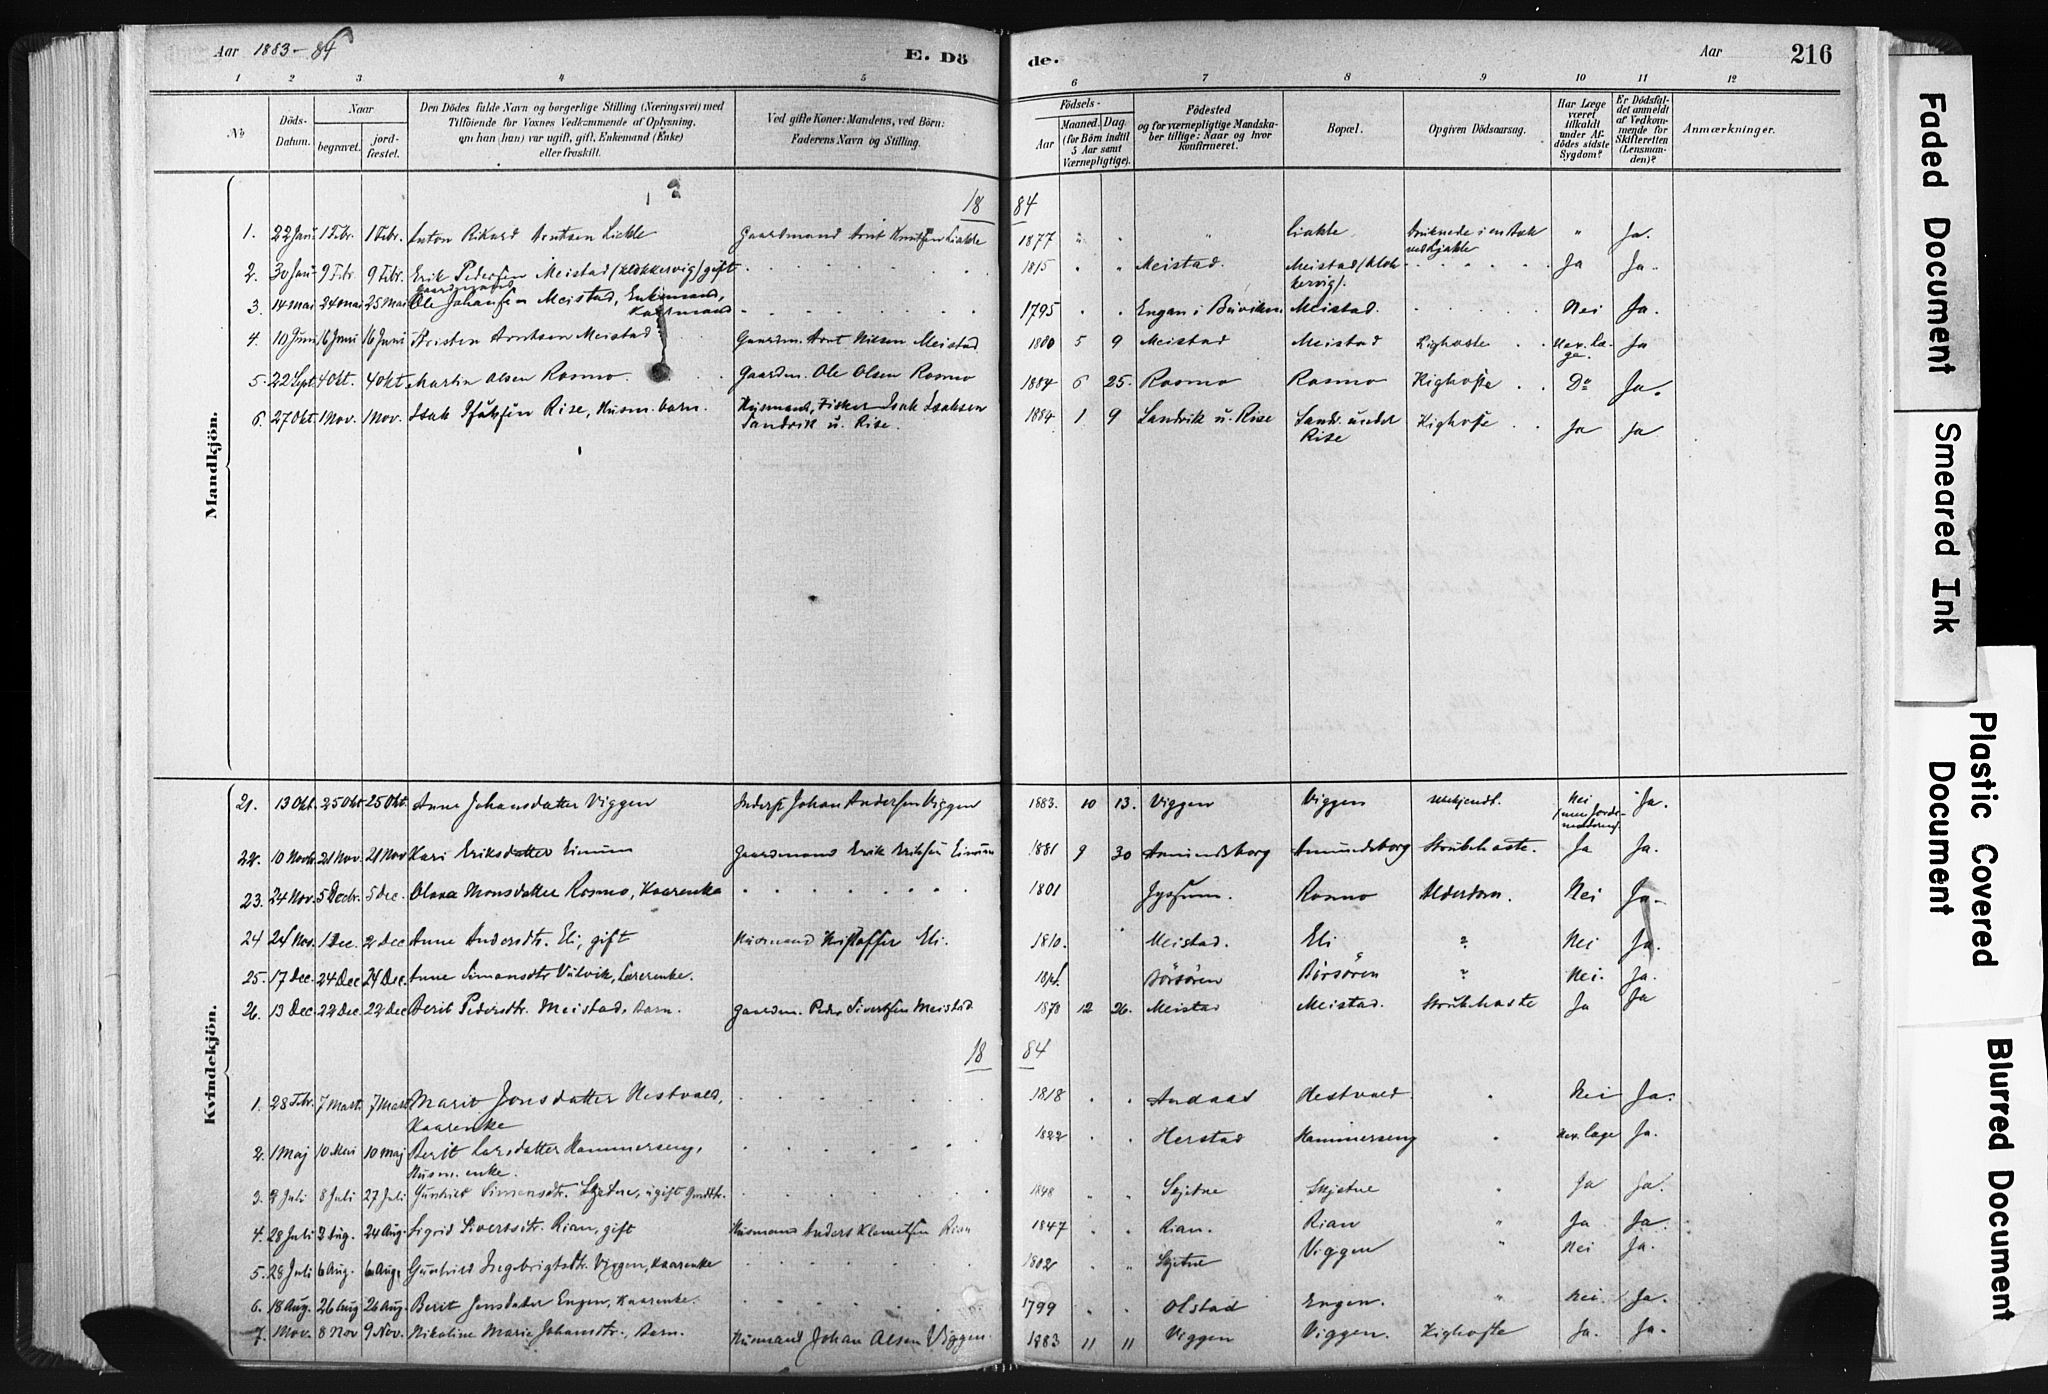 Aar 1883-84
E. Dö
de.
Aar
216
1 2 3 4 5 6 7 8 9 10 11 12
No
Döds-Datum.
Naar
begravet.
jord-fæstet.
Den Dödes fulde Navn og borgerlige Stilling (Næringsvei) med
Tilföiende for Voxnes Vedkommende af Oplysning,
om han (hun) var ugift, gift, Enkemand (Enke)
eller fraskilt.
Ved gifte Koner: Mandens, ved Börn:
Faderens Navn og Stilling.
Födsels-
Aar
Maaned. Dag.
(for Börn indtil
5 Aar samt
Værnepligtige).
Födested
og for værnepligtige Mandska-
ber tillige: Naar og hvor
Konfirmeret.
Bopæl.
Opgiven Dödsaarsag.
Har Læge
været
tilkaldt
under Af-
dödes sidste
Sygdom?
Er Dödsfal-
det anmeldt
af Vedkom-
mende for
Skifteretten
(Lensman-
den)?
Anmærkninger.
Mandkjön.
18 84
1. 22 Janr 1 Febr. 1 Febr. Anton Rikard Arntsen Gaardmand Arnt Knutsen 1877 " " " druknede i en " Ja.
2. 30 Janr 9 Febr. 9 Febr. Erik Pedersen Meistad (Klokkervig) gift 1815 " " Meistad. Meistad (Klok- Ja Ja.
gaardmand kervig).
3. 14 mai 24 mai 25 Mai Ole Johansen Meistad, Enkemand, 1795 " " Engan i Buviken Meistad. Nei Ja.
Kaarmand
4. 10 Juni 16 Juni 16 Juni Kristen Arntsen Meistad Gaardm. Arnt Nilsen Meistad 1880 5 9 Meistad Meistad Kighoste Hex. Læ- Ja
ge.
5. 22 Sept. 4 Okt. 4 Okt Martin Olsen Rosmo. Gaardm. Ole Olsen Rosmo 1884 6 25. Rosmo Rosmo Kighoste Do Ja.
6. 27 Okt. 1 Nov. 1 Nov. Isak Isaksen Rise, Husm. barn. Husmand, Fisker Isak Isaksen 1884 1 9 Sandvik u. Rise Sandv. under Kighoste Ja Ja
Sandvik u. Rise. Rise
Kvindekjön.
21. 13 Okt. 25 Okt 25 Okt. Anne Johansdatter Viggen Inderst Johan Andersen Viggen 1883. 10 13. Viggen Viggen ubekjendt. Nei Ja.
22. 10 Novb. 21 Nov. 21 Nov Kari Eriksdatter Eimum Gaardmand Erik Eriksen Eimum 1881 9 30 Amundsborg Amundsborg Strubehoste. Ja Ja.
23. 24 Nov. 5 Decbr. 5 Dec. Olava Monsdatter Rosmo, Kaarenke 1801 Rosmo Alderdom. Nei Ja.
24 24 Nov. 1 Dec. 2 Dec Anne Andersdtr. Eli, gift Husmand Kristoffer Eli. 1810. Meistad. Eli ? Nei Ja.
25. 17 Dec. 24 Dec 24 Dec. Anne Simonsdtr Börsören Börsören ? Nei. Ja.
26. 13 Dec. 22 Dec. 22 Dec Berit Pedersdtr. Meistad, Barn. Gaardm. Peder Sivertsen Meistad 1878 12 26. Meistad Meistad. Strubehoste Ja Ja
18 84
1. 28 Febr. 7 Mart. 7 Mart Marit Jonsdatter Hestvold, 1818 " " Hestvold. " Nei Ja.
Kaarenke
2. 1 Maj 10 Mai 10 maj Berit Larsdatter Hammerseng, 1822 " " Herstad Hammerseng " Hex. Læge Ja.
Husm. enke.
3. 2 Juli 8 Juli 27 Juli Gunhild Simonsdtr. Skjetne, ugift 1848 " " Skjetne Skjetne " Ja Ja.
4. 28 Juli 2 Aug. 24 Aug. Sigrid Sivertsdtr. Rian, gift Husmand Anders Klemetsen Rian 1847 " " Rian. Rian " Ja Ja.
5. 28 Juli 6 Aug. 6 Aug. Gunhild Ingebrigtsdtr. Viggen, Kaarenke 1802 " " Skjetne Viggen " Nei Ja.
6. 18 Aug. 26 Aug 26 Aug. Berit Jonsdatter Engen, Kaarenke. 1799 " " Olstad Engen. " Nei. Ja.
7. 1 Nov. 8 Nov 9 Nov. Nikoline Marie Johansdtr. Barn. Husmand Johan Olsen Viggen. 1883 11 11 Viggen Viggen. Kighoste Ja. Ja.
Faded Document
Smeared Ink
Plastic Covered
Document
Blurred Document